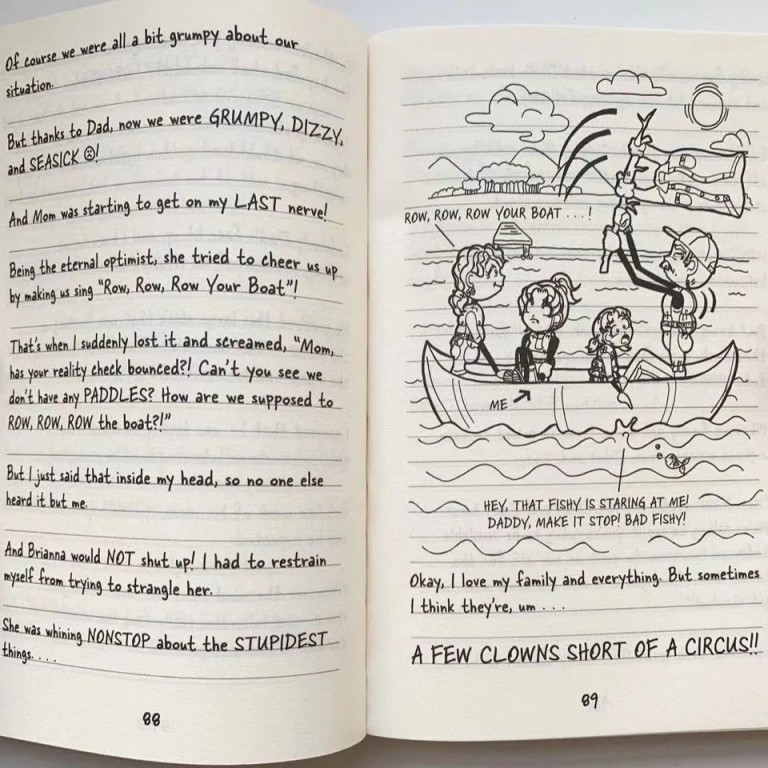 Of course we were all a bit grumpy about our
situation.
But thanks to Dad, now we were GRUMPY, DIZZY,
and SEASICK ☹!
And Mom was starting to get on my LAST nerve!
Being the eternal optimist, she tried to cheer us up
by making us sing “Row, Row, Row Your Boat”!
That’s when I suddenly lost it and screamed, “Mom,
has your reality check bounced?! Can’t you see we
don’t have any PADDLES? How are we supposed to
ROW, ROW, ROW the boat?!”
But I just said that inside my head, so no one else
heard it but me.
And Brianna would NOT shut up! I had to restrain
myself from trying to strangle her.
She was whining NONSTOP about the STUPIDEST
things. . . .
88
ROW, ROW, ROW YOUR BOAT . . . !
ME
HEY, THAT FISHY IS STARING AT ME!
DADDY, MAKE IT STOP! BAD FISHY!
Okay, I love my family and everything. But sometimes
I think they’re, um . . .
A FEW CLOWNS SHORT OF A CIRCUS!!
89